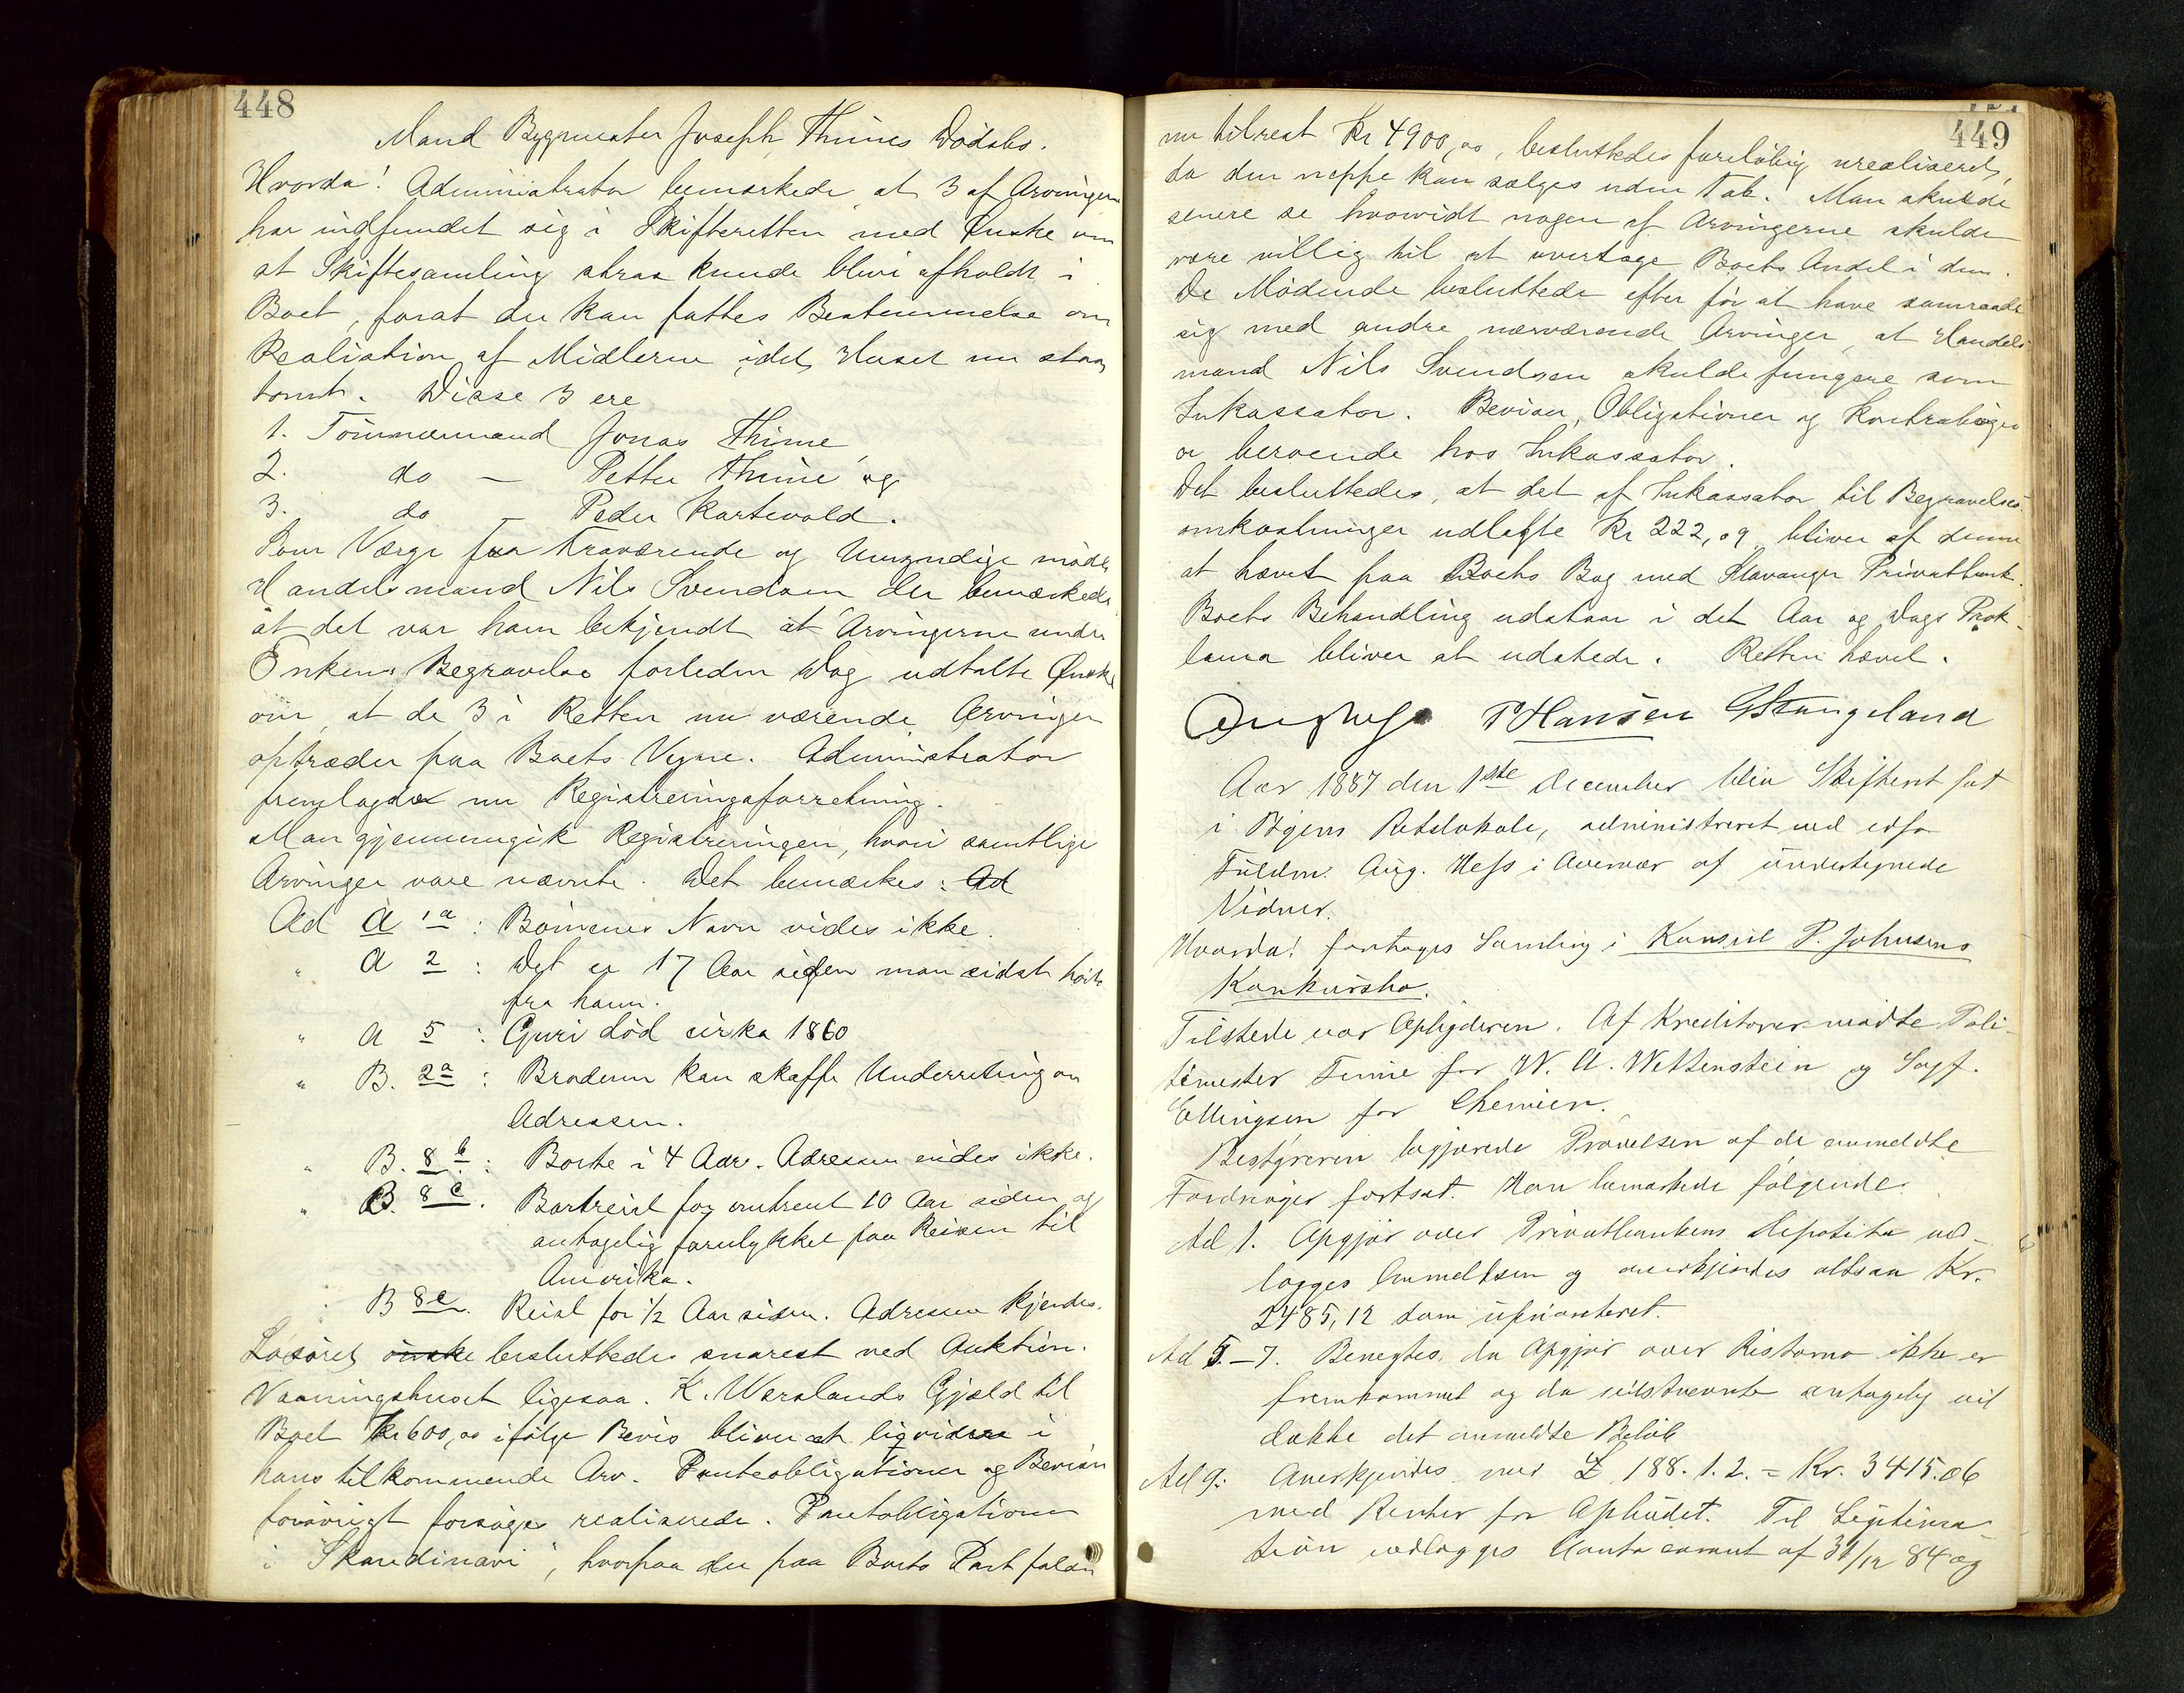 448
Mand Bygmester Joseph Thimes Dødsbo.
Hvorda! Administrator bemærkede, at 3 af Arvingerne
har indfundet sig i Skifteretten med Ønske om
at Skiftesamling strax kunde blive afholdt i
Boet, forat der kan fattes Bestemmelse om
Realisation af Midlerne, idet Huset nu staar
tomt. Disse 3 ere
1. Tømmermand Jonas Thime,
2. do — Petter Thime og
3. do — Peder Kartevold.
Som Værge for Fraværende og Umyndige mødte
Handelsmand Nils Svendsen der bemærkede
at det var ham bekjendt at Arvingerne under
Enkens Begravelse forleden Dag udtalte Ønske
om, at de 3 i Retten nu værende Arvinger
optræder paa Boets Vegne. Administrator
fremlagde nu Registreringsforretning.
Man gjennemgik Registreringen, hvori samtlige
Arvinger vare nævnte. Det bemærkes: Ad
Ad A 1a : Børnenes Navn vides ikke.
" A 2 : Det er 17 Aar siden man sidst hørte
fra ham.
" A 5 : Guri død cirka 1860
" B. 2a : Broderen kan skaffe Underretning om
Adressen.
" B. 8b : Borte i 4 Aar. Adressen vides ikke.
" B. 8c. Bortreist for omtrent 10 Aar siden og
antagelig forulykket paa Reisen til
Amerika.
" B 8e. Reist for 1/2 Aar siden. Adressen kjendes.
Løsøret ønske besluttedes snarest ved Auktion.
Vaaningshuset ligesaa. K. Warslands Gjæld til
Boet Kr 600,00 ifølge Bevis bliver at likvidere i
hans tilkommende Arv. Panteobligationer og Beviser
forøvrigt forsøges realiserede. Pantobligationen
i "Skandinavi", hvorpaa der paa Boets Part falder
449
nu tilrest Kr 4900,00, besluttedes foreløbig urealiseret,
da den neppe kan sælges uden Tab. Man skulde
senere se hvorvidt nogen af Arvingerne skulde
være villig til at overtage Boets Andel i den.
De Mødende besluttede efter før at have samraadt
sig med andre nærværende Arvinger, at Handels-
mand Nils Svendsen skulde fungere som
Inkassator. Beviser, Obligationer og Kontrabøger
er beroende hos Inkassator.
Det besluttedes, at det af Inkassator til Begravelses-
omkostninger udlagte Kr 222,09 bliver af denne
at hævet paa Boets Bog med Stavanger Privatbank.
Boets Behandling udstaar i det Aar og Dags Prok-
lama bliver at udstede. Retten hævet.
P Hansen G Stangeland
Aar 1887 den 1ste December blev Skifteret sat
i Byens Retslokale, administreret ved edsv
Fuldm: Aug. Hess i Overvær af undertegnede
Vidner.
Hvorda! foretoges Samling i Konsul P. Johnsens
Konkursbo.
Tilstede var Opbyderen. Af Kreditorer mødte Poli-
timester Finne for W. A. Wettenstein og Sagf.
Ellingsen for Chemien.
Bestyreren begjærede Prøvelsen af de anmeldte
Fordringer fortsat. Han bemærkede følgende:
Ad 1. Opgjør over Privatbankens Deposita ved-
lægges Anmeldelsen og anerkjendes altsaa Kr.
2485,12 som uprioriteret.
Ad 5.—7. Benegtes, da Opgjør over Ristorno ikke er
fremkommet og da sidstnevnte antagelig vil
dække det anmeldte Beløb
Ad 9. Anerkjendes med £ 188.1.2. = Kr. 3415.06
med Renter fra Opbudet. Til Legitima-
tion vedlægges Conto courant af 31/12 84 og